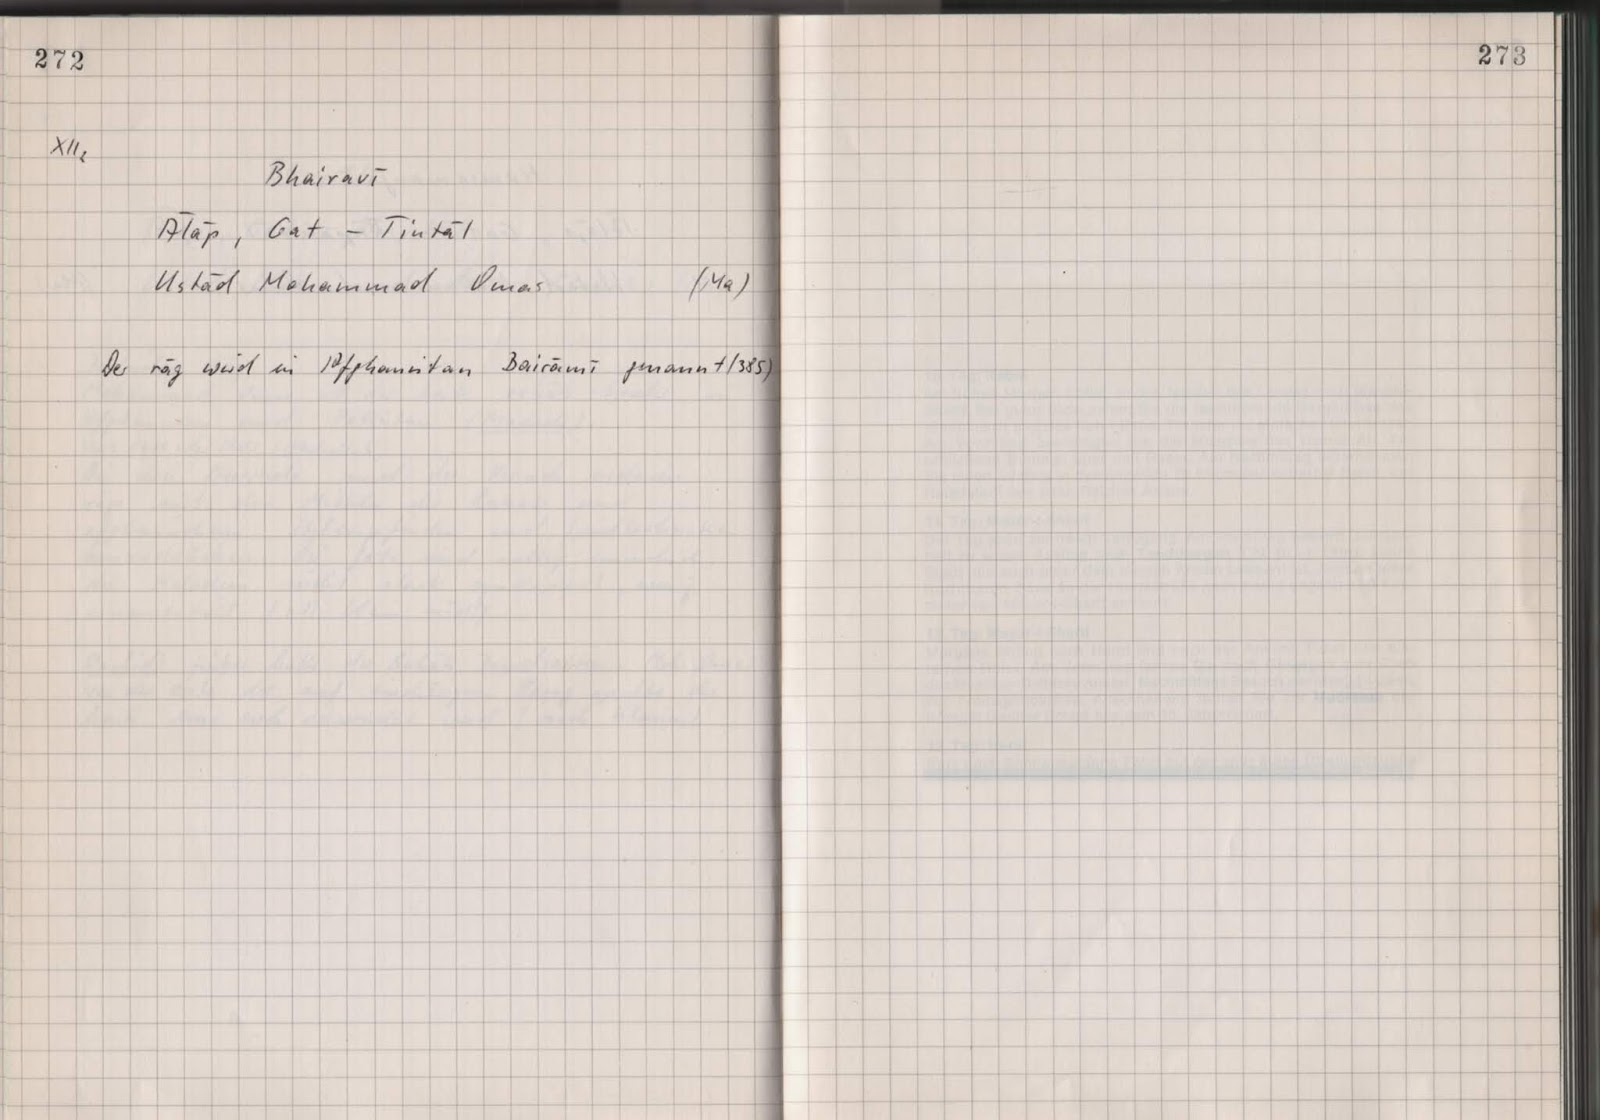 272
273
XII2
Bhairavī
Ālāp, Gat - Tintāl
Ustād Mohammad Omar (Ma)
Der rāg wird in Afghanistan Bairāmī genannt (385)